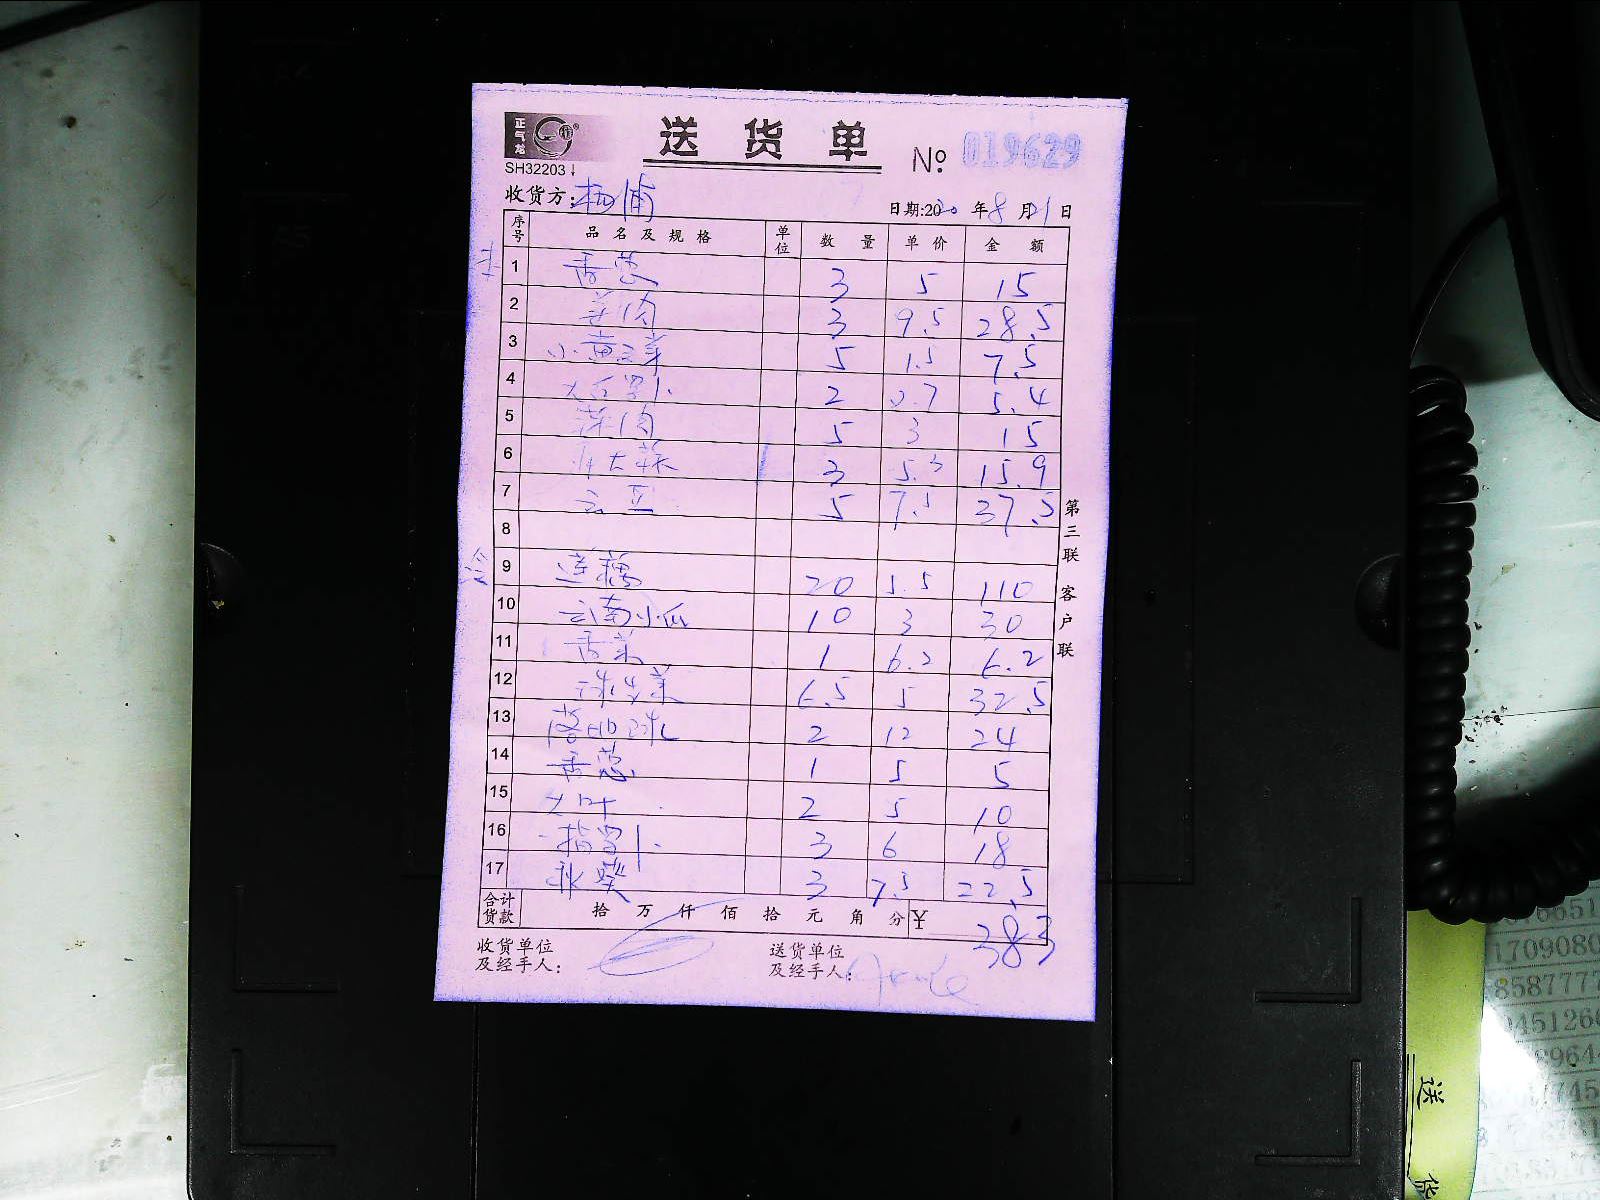 正气龙
送 货 单 No. 019629
SH32203↓
收货方：杨浦 日期:2020年8月21日
序号 品名及规格 单位 数量 单价 金额
1 香葱 3 5 15
2 姜肉 3 9.5 28.5
3 小黄芽 5 1.5 7.5
4 大白萝卜 2 2.7 5.4
5 蒜肉 5 3 15
6 大蒜 3 5.3 15.9
7 云豆 5 7.5 37.5
8
9 莲藕 20 5.5 110
10 云南小瓜 10 3 30
11 香菜 1 6.2 6.2
12 球生菜 6.5 5 32.5
13 2 12 24
14 香葱 1 5 5
15 大叶 2 5 10
16 指萝卜 3 6 18
17 秋葵 3 7.5 22.5
合计货款 拾 万 仟 佰 拾 元 角 分 ￥ 383
收货单位及经手人： 送货单位及经手人：
第三联 客户联
送 货